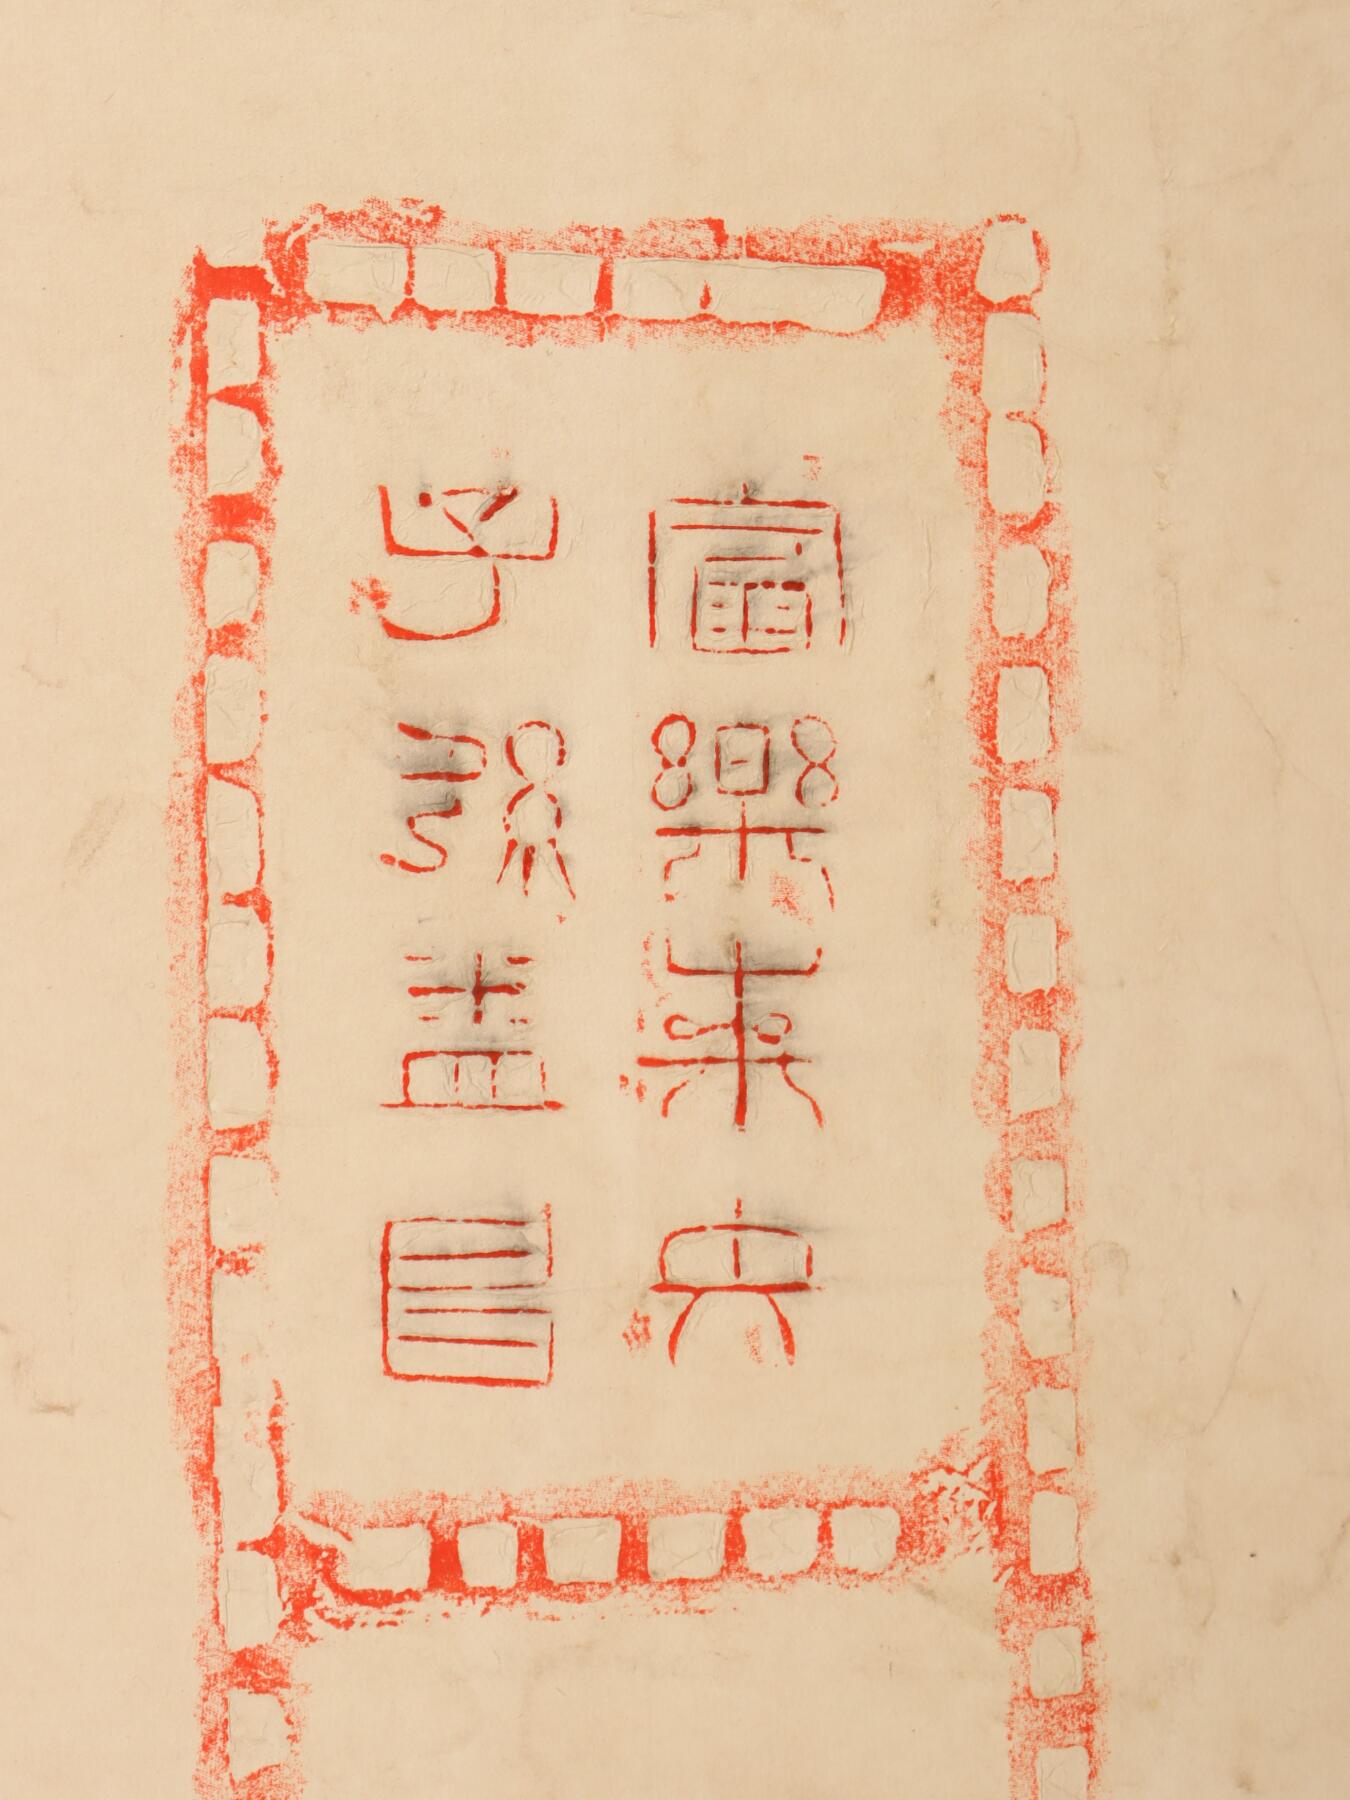 富樂未央
子孫益昌